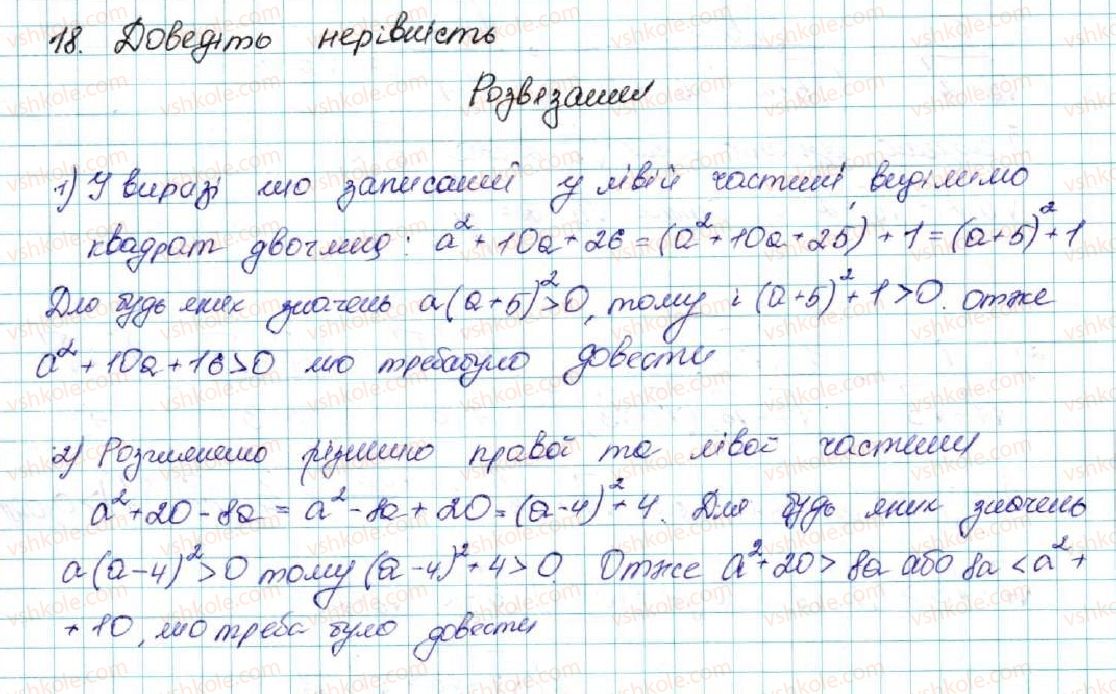 18. Доведіть нерівність
Розвязання
1) У виразі що записаний у лівій частині, виділимо
квадрат двочлена: a² + 10a + 26 = (a² + 10a + 25) + 1 = (a+5)² + 1
Для будь яких значень a (a+5)² > 0, тому і (a+5)² + 1 > 0. Отже
a² + 10a + 16 > 0 що требабуло довести
2) Розглянемо різницю правої та лівої частини
a² + 20 - 8a = a² - 8a + 20 = (a-4)² + 4. Для будь яких значень
a (a-4)² > 0 тому (a-4)² + 4 > 0. Отже a² + 20 > 8a або 8a < a² +
+ 10, що треба було довести